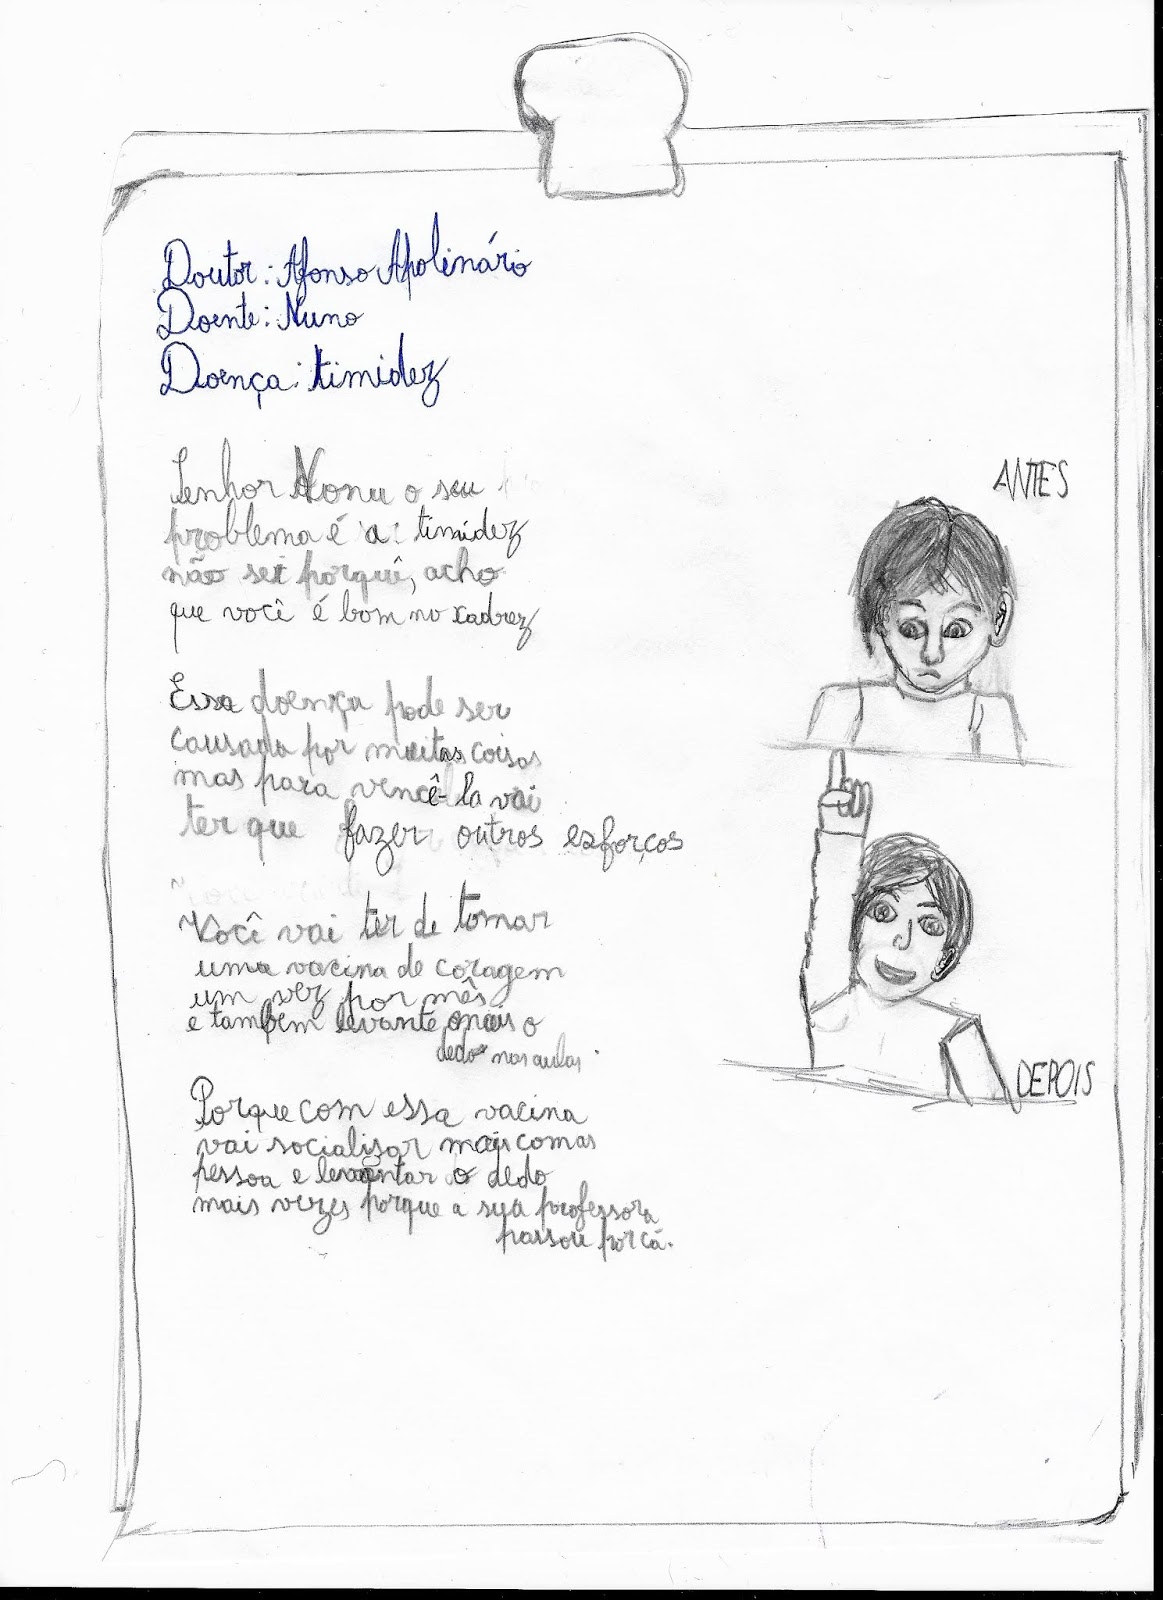 Doutor: Afonso Apolinário
Doente: Nuno
Doença: timidez
Senhor Nonu o seu
problema é a: timidez
não sei porquê, acho
que você é bom no xadrez
Essa doença pode ser
causada por muitas coisas
mas para vencê-la vai
ter que fazer outros esforços
Você vai ter de tomar
uma vacina de coragem
um vez por mês
e também levante mais o
dedo nas aulas.
Porque com essa vacina
vai socialisar mais com as
pessoa e levantar o dedo
mais vezes porque a sua professora
passou por cá.
ANTES
DEPOIS